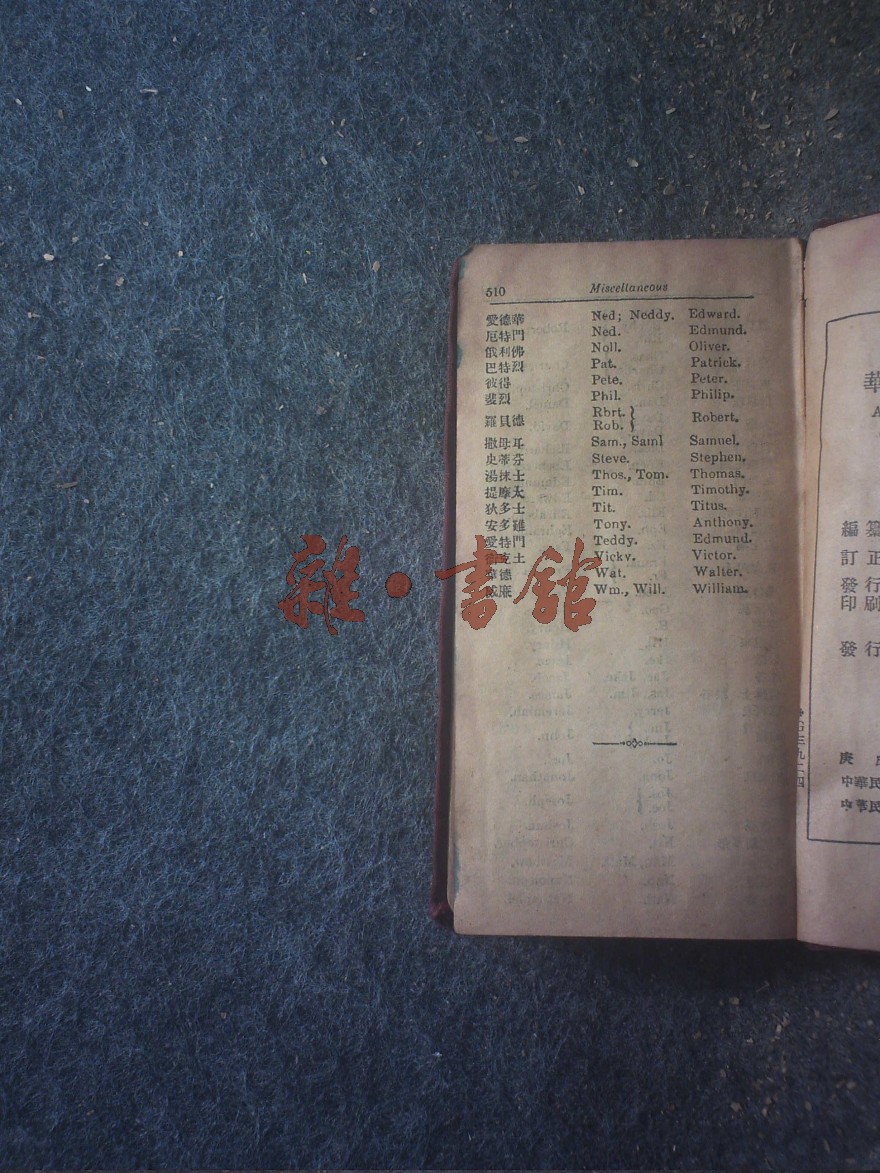 510 Miscellaneous
愛德華 Ned; Neddy. Edward.
厄特門 Ned. Edmund.
俄利佛 Noll. Oliver.
巴特烈 Pat. Patrick.
彼得 Pete. Peter.
斐烈 Phil. Philip.
羅貝德 Rbrt. Rob. } Robert.
撒母耳 Sam., Saml Samuel.
史蒂芬 Steve. Stephen.
湯抹士 Thos., Tom. Thomas.
提摩太 Tim. Timothy.
狄多士 Tit. Titus.
安多雖 Tony. Anthony.
愛特門 Teddy. Edmund.
克土 Vicky. Victor.
德 Wat. Walter.
威廉 Wm., Will. William.
雜·書館
華
A
編纂
訂正
發行
印刷
發行
庚
中華民
中華民